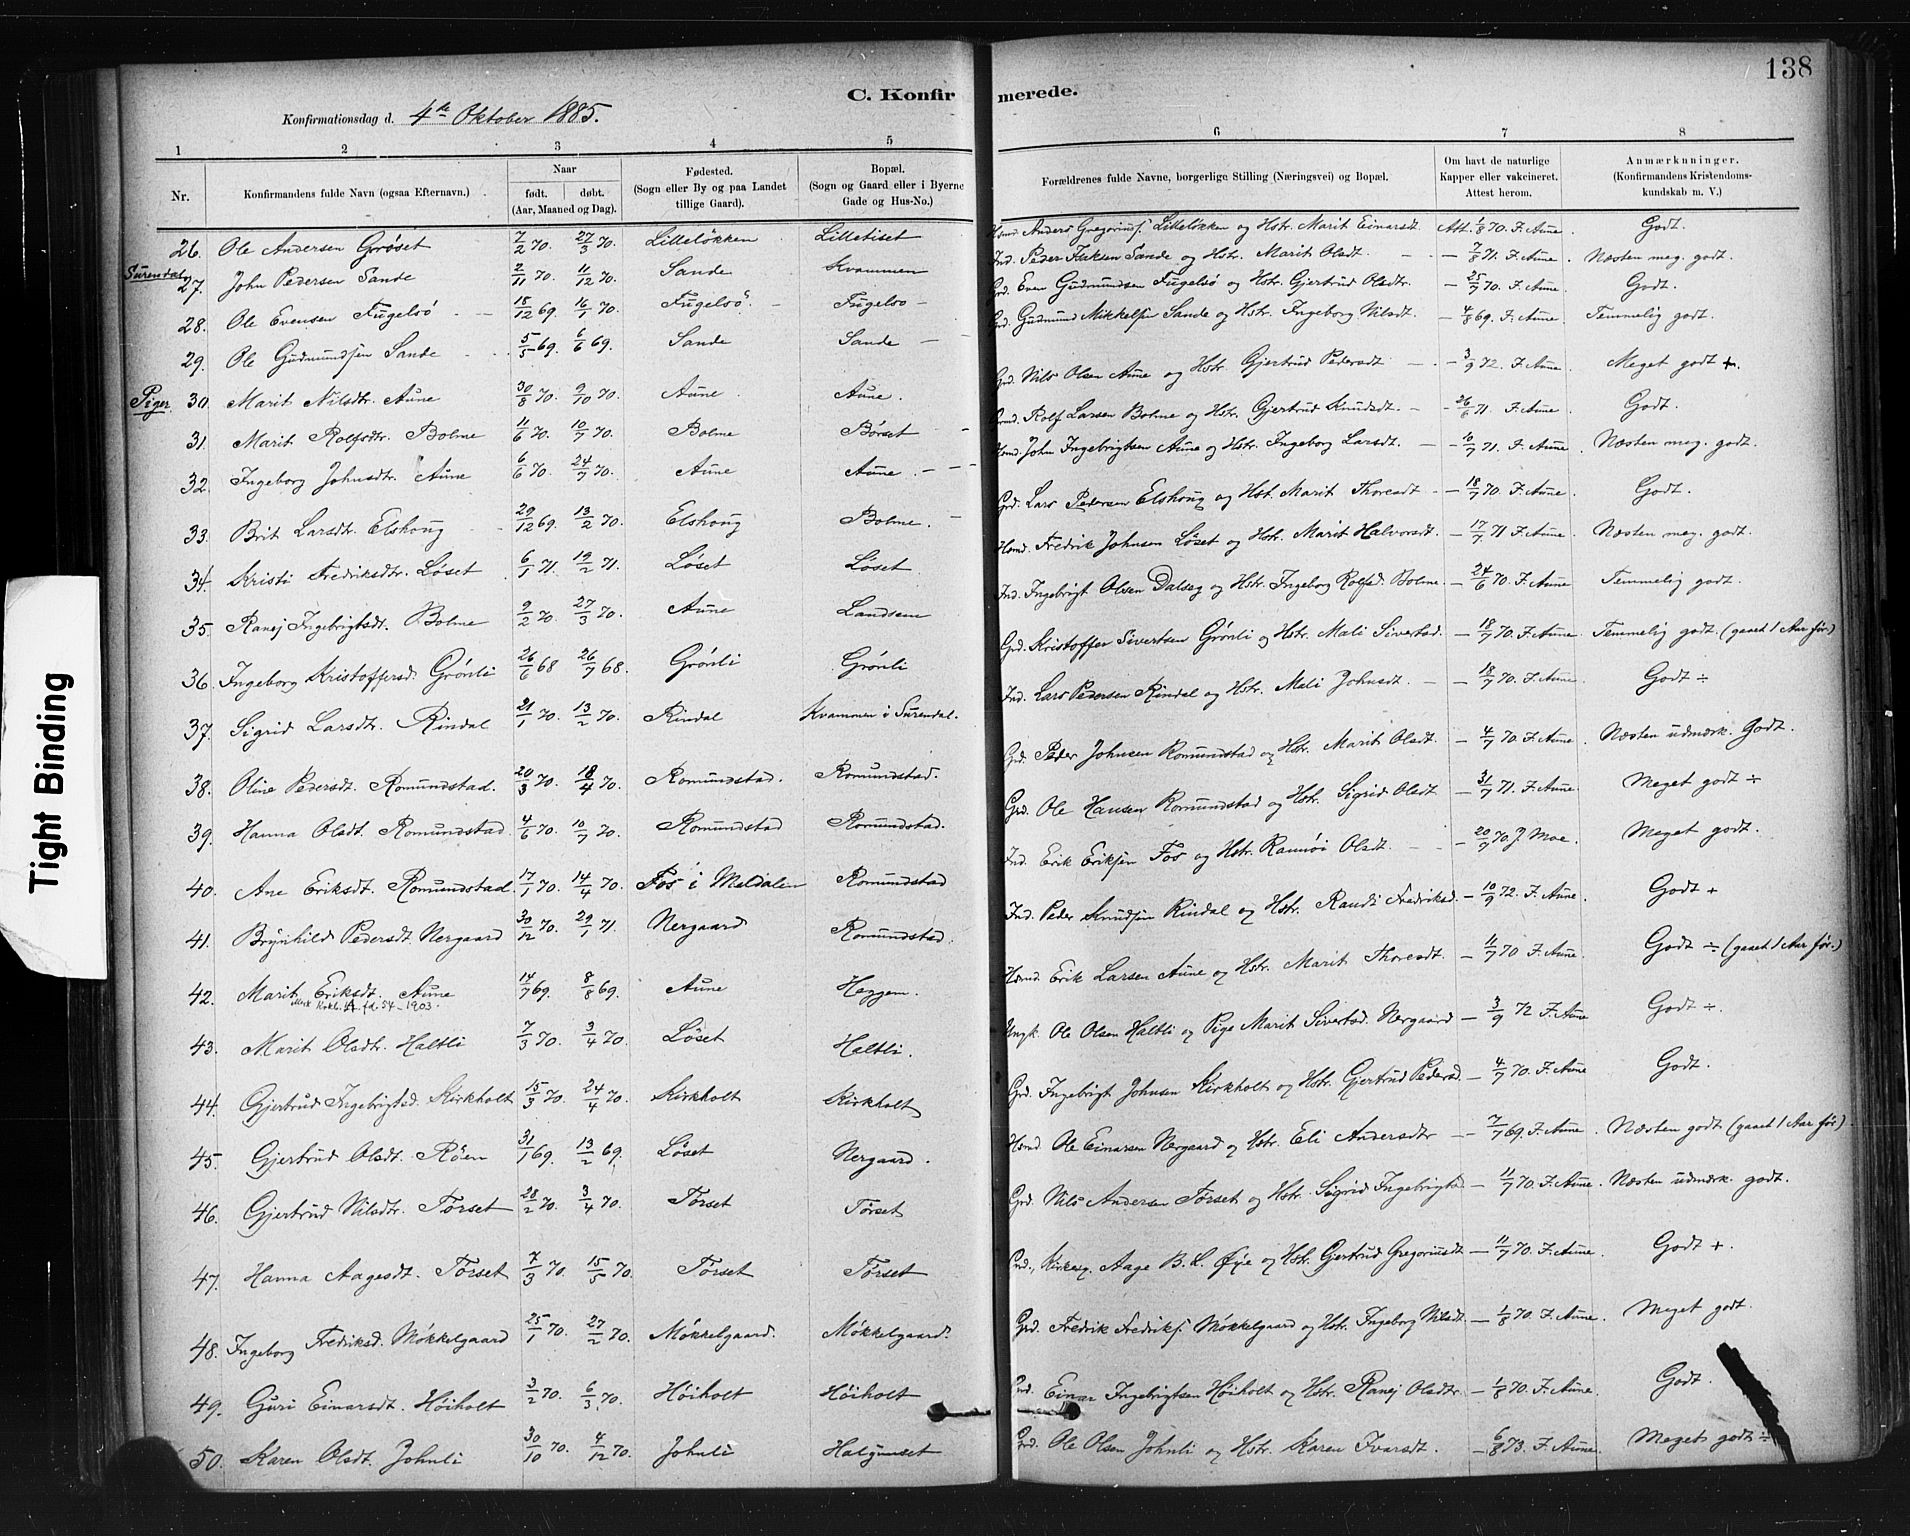 138
C. Konfirmerede.
Konfirmationsdag d. 4de Oktober 1885.
1 2 3 4 5 6 7 8
Nr. Konfirmandens fulde Navn (ogsaa Efternavn.) Naar født. døbt. (Aar, Maaned og Dag). Fødested. (Sogn eller By og paa Landet tillige Gaard). Bopæl. (Sogn og Gaard eller i Byerne Gade og Hus-No.) Forældrenes fulde Navne, borgerlige Stilling (Næringsvei) og Bopæl. Om havt de naturlige Kapper eller vakcineret. Attest herom. Anmærkninger. (Konfirmandens Kristendomskundskab m. V.)
26. Ole Andersen Grøset 7/2 70. 27/3 70. Lilleløkken Lilletiset Hsmd. Anders Gregoriusf. Lilleløkken og Hstr. Marit Einarsdt. Att. 1/8 70. F. Aune. Godt.
Surendal 27. John Pedersen Sande 2/11 70. 11/12 70. Sande Kvammen Ind. Peder Sande og Hstr. Marit Olsdt. — 7/8 71. F. Aune. Næsten meg. godt.
28. Ole Evensen Fugelsø 18/12 69. 16/1 70. Fugelsø. Fugelsø Grd. Even Gudmundsen Fugelsø og Hstr. Gjertrud Olsdtr. — 25/7 70. F. Aune. Godt.
29. Ole Gudmundsen Sande 5/5 69. 6/6 69. Sande Sande Grd. Gudmund Mikkelsen Sande og Hstr. Ingeborg Nilsdt. — 4/8 69. F. Aune. Temmelig godt.
Piger 30. Marit Nilsdtr. Aune 30/8 70. 9/10 70. Aune. Aune. Grd. Nils Olsen Aune og Hstr. Gjertrud Pedersdt. — 3/9 72. F. Aune. Meget godt +.
31. Marit Rolfsdtr. Bolme 11/6 70. 10/7 70. Bolme Børset Rolf Larsen Bolme og Hstr. Gjertrud Knudsdt. — 26/6 71. F. Aune. Godt.
32. Ingeborg Johnsdtr. Aune 6/6 70. 24/7 70. Aune Aune. Hsmd. John Ingebrigtsen Aune og Hstr. Ingeborg Larsdt. — 10/7 71. F. Aune. Næsten meg. godt.
33. Brit Larsdt. Elshoug 29/12 69. 13/2 70. Elshoug Bolme. Grd. Lars Pedersen Elshoug og Hst. Marit Thoresdt. — 18/7 70. F. Aune. Godt.
34. Kristi Fredriksdtr. Løset 6/1 71. 19/2 71. Løset Løset. Hsmd. Fredrik Johnsen Løset og Hstr. Marit Halvorsdt. — 17/7 71 F. Aune. Næsten meg. godt.
35. Ranej Ingebrigtsdt. Bolme 9/2 70. 27/3 70. Aune Landsem Ind. Ingebrigt Olsen Dalseg og Hstr. Ingeborg Rolfsd. Bolme. — 24/6 70. F. Aune Temmelig godt.
36. Ingeborg Kristoffersd. Grønli 26/6 68 26/7 68. Grønli Grønli Grd. Kristoffer Sivertsen Grønli og Hstr. Mali Sivertsd. — 18/7 70. F. Aune. Temmelig godt. (gaaet 1 Aar før.)
37. Sigrid Larsdtr. Rindal 21/1 70. 13/2 70. Rindal Kvammen i Surendal. Ind. Lars Pedersen Rindal og Hstr. Mali Johnsdt. — 18/7 70. F. Aune. Godt ÷
38. Oline Pedersdt. Romundstad. 20/3 70. 18/4 70. Romundstad. Romundstad. Grd. Peder Johnsen Romundstad og Hstr. Marit Olsdt. — 4/7 70. F. Aune. Næsten udmærk. Godt.
39. Hanna Olsdt. Romundstad 4/6 70. 10/7 70. Romundstad Romundstad. Grd. Ole Hansen Romundstad og Hstr. Sigrid Olsdt. — 31/7 71. F. Aune Meget godt ÷
40. Ane Eriksdt. Romundstad. 17/1 70. 14/4 70. Fos i Meldalen Romundstad Ind. Erik Eriksen Fos og Hstr. Olsdt. — 20/9 70. J. Moe. Meget godt.
41. Brynhild Pedersdt. Nergaard 30/12 70. 29/1 71. Nergaard Romundstad. Ind. Peder Knudsen Rindal og Hstr. Randi Fredriksd. — 10/9 72. F. Aune. Godt +
42. Marit Eriksdt. Aune 14/7 69. 8/8 69. Aune Heggem. Hsmd. Erik Larsen Aune og Hstr. Marit Thoresdt. — 11/7 70 F. Aune. Godt ÷ (gaaet 1 Aar før.)
54 - 1903.
43. Marit Olsdtr. Haltli 7/3 70. 3/4 70. Løset Haltli. Ungk. Ole Olsen Haltli og Pige Marit Sivertsd. Nergaard — 3/9 72 F. Aune Godt ÷.
44. Gjertrud Ingebrigtsd. Kirkholt 15/3 70. 24/4 70. Kirkholt Kirkholt Grd. Ingebrigt Johnsen Kirkholt og Hstr. Gjertrud Pedersd. — 4/7 70. F. Aune Godt.
45. Gjertrud Olsdt. Røen 31/1 69. 13/2 69. Løset Nergaard. Hsmd. Ole Einarsen Nergaard og Hstr. Eli Andersdtr — 7/7 69. F. Aune. Næsten godt (gaaet 1 Aar før).
46. Gjertrud Nilsdtr. Tørset 28/2 70. 3/4 70. Tørset Tørset Grd. Nils Andersen Tørset og Hstr. Sigrid Ingebrigtsd — 11/7 70. F. Aune. Næsten udmærk. godt.
47. Hanna Aagesdt. Tørset 7/3 70. 15/5 70. Tørset Tørset Grd., Kirkesg. Aage B. L. Øye og Hstr. Gjertrud Gregoriusdt — 11/7 70. F. Aune. Godt +.
48. Ingeborg Fredriksd. Møkkelgaard 25/1 70. 27/2 70. Møkkelgaard. Møkkelgaard. Grd. Fredrik Fredriksf. Møkkelgaard og Hstr. Ingeborg Nilsdt — 1/8 70. F. Aune. Meget godt.
49. Guri Einarsdt. Høiholt 3/2 70. 6/3 70. Høiholt Høiholt Grd. Einar Ingebrigtsen Høiholt og Hstr. Ranej Olsdtr — 1/8 70. F. Aune. Godt.
50. Karen Olsdt. Johnli 30/10 70. 4/12 70. Johnli Halgunset Grd. Ole Olsen Johnli og Hstr. Karen Ivarsdt. — 6/8 73. F. Aune. Meget godt ÷
Tight Binding